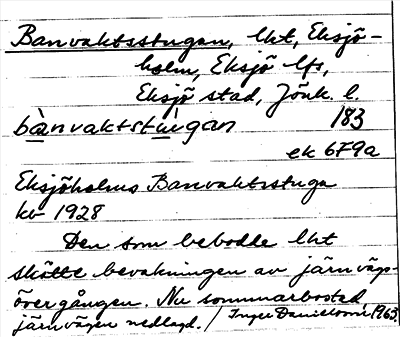 Banvaktsstugan, lht, Eksjö-
holm, Eksjö lfs,
Eksjö stad, Jönk. l.
bànvaktstùgan 183
ek 679a
Eksjöholms Banvaktsstuga
kv 1928
Den som bebodde lht
skötte bevakningen av järnvägs-
övergången. Nu sommarbostad,
järnvägen nedlagd. / Inger Danielsson, 1963